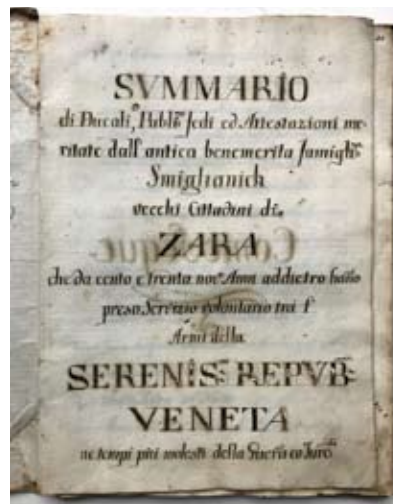 SVMMARIO
di Ducali, Publ:ᵉ fedi ed Attestazioni me=
ritate dall'antica benemerita famigli:ᵃ
Smiglianich
vecchi Cittadini di
ZARA
che da cento e trenta nov:ᵉ Anni addietro hanno
preso Servizio volontario trà l'
Armi della
SERENIS:ᵃ REPVB:ᵃ
VENETA
ne tempi più molesti della Guerra co Turc:ᵒ